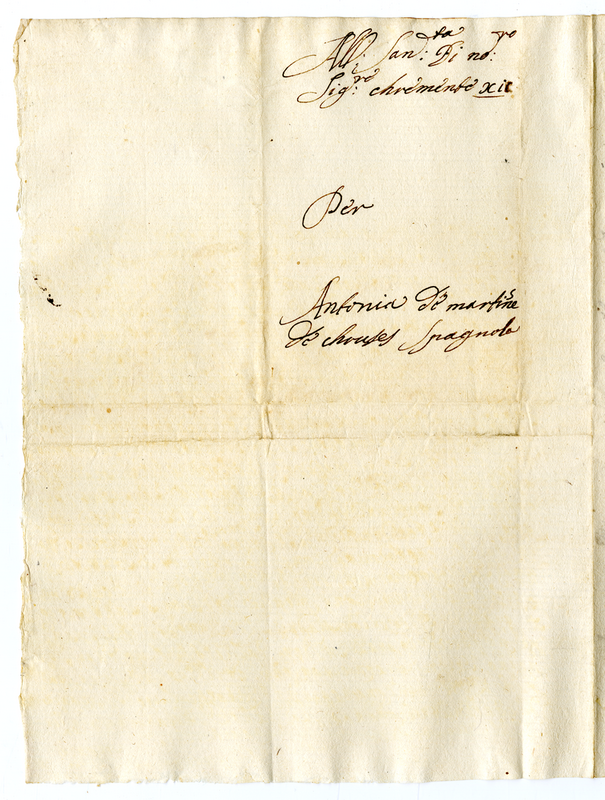 All: San:ta Di no:ro
Sig:re chremente xii
Per
Antonia de martine
de chouses Spagnola